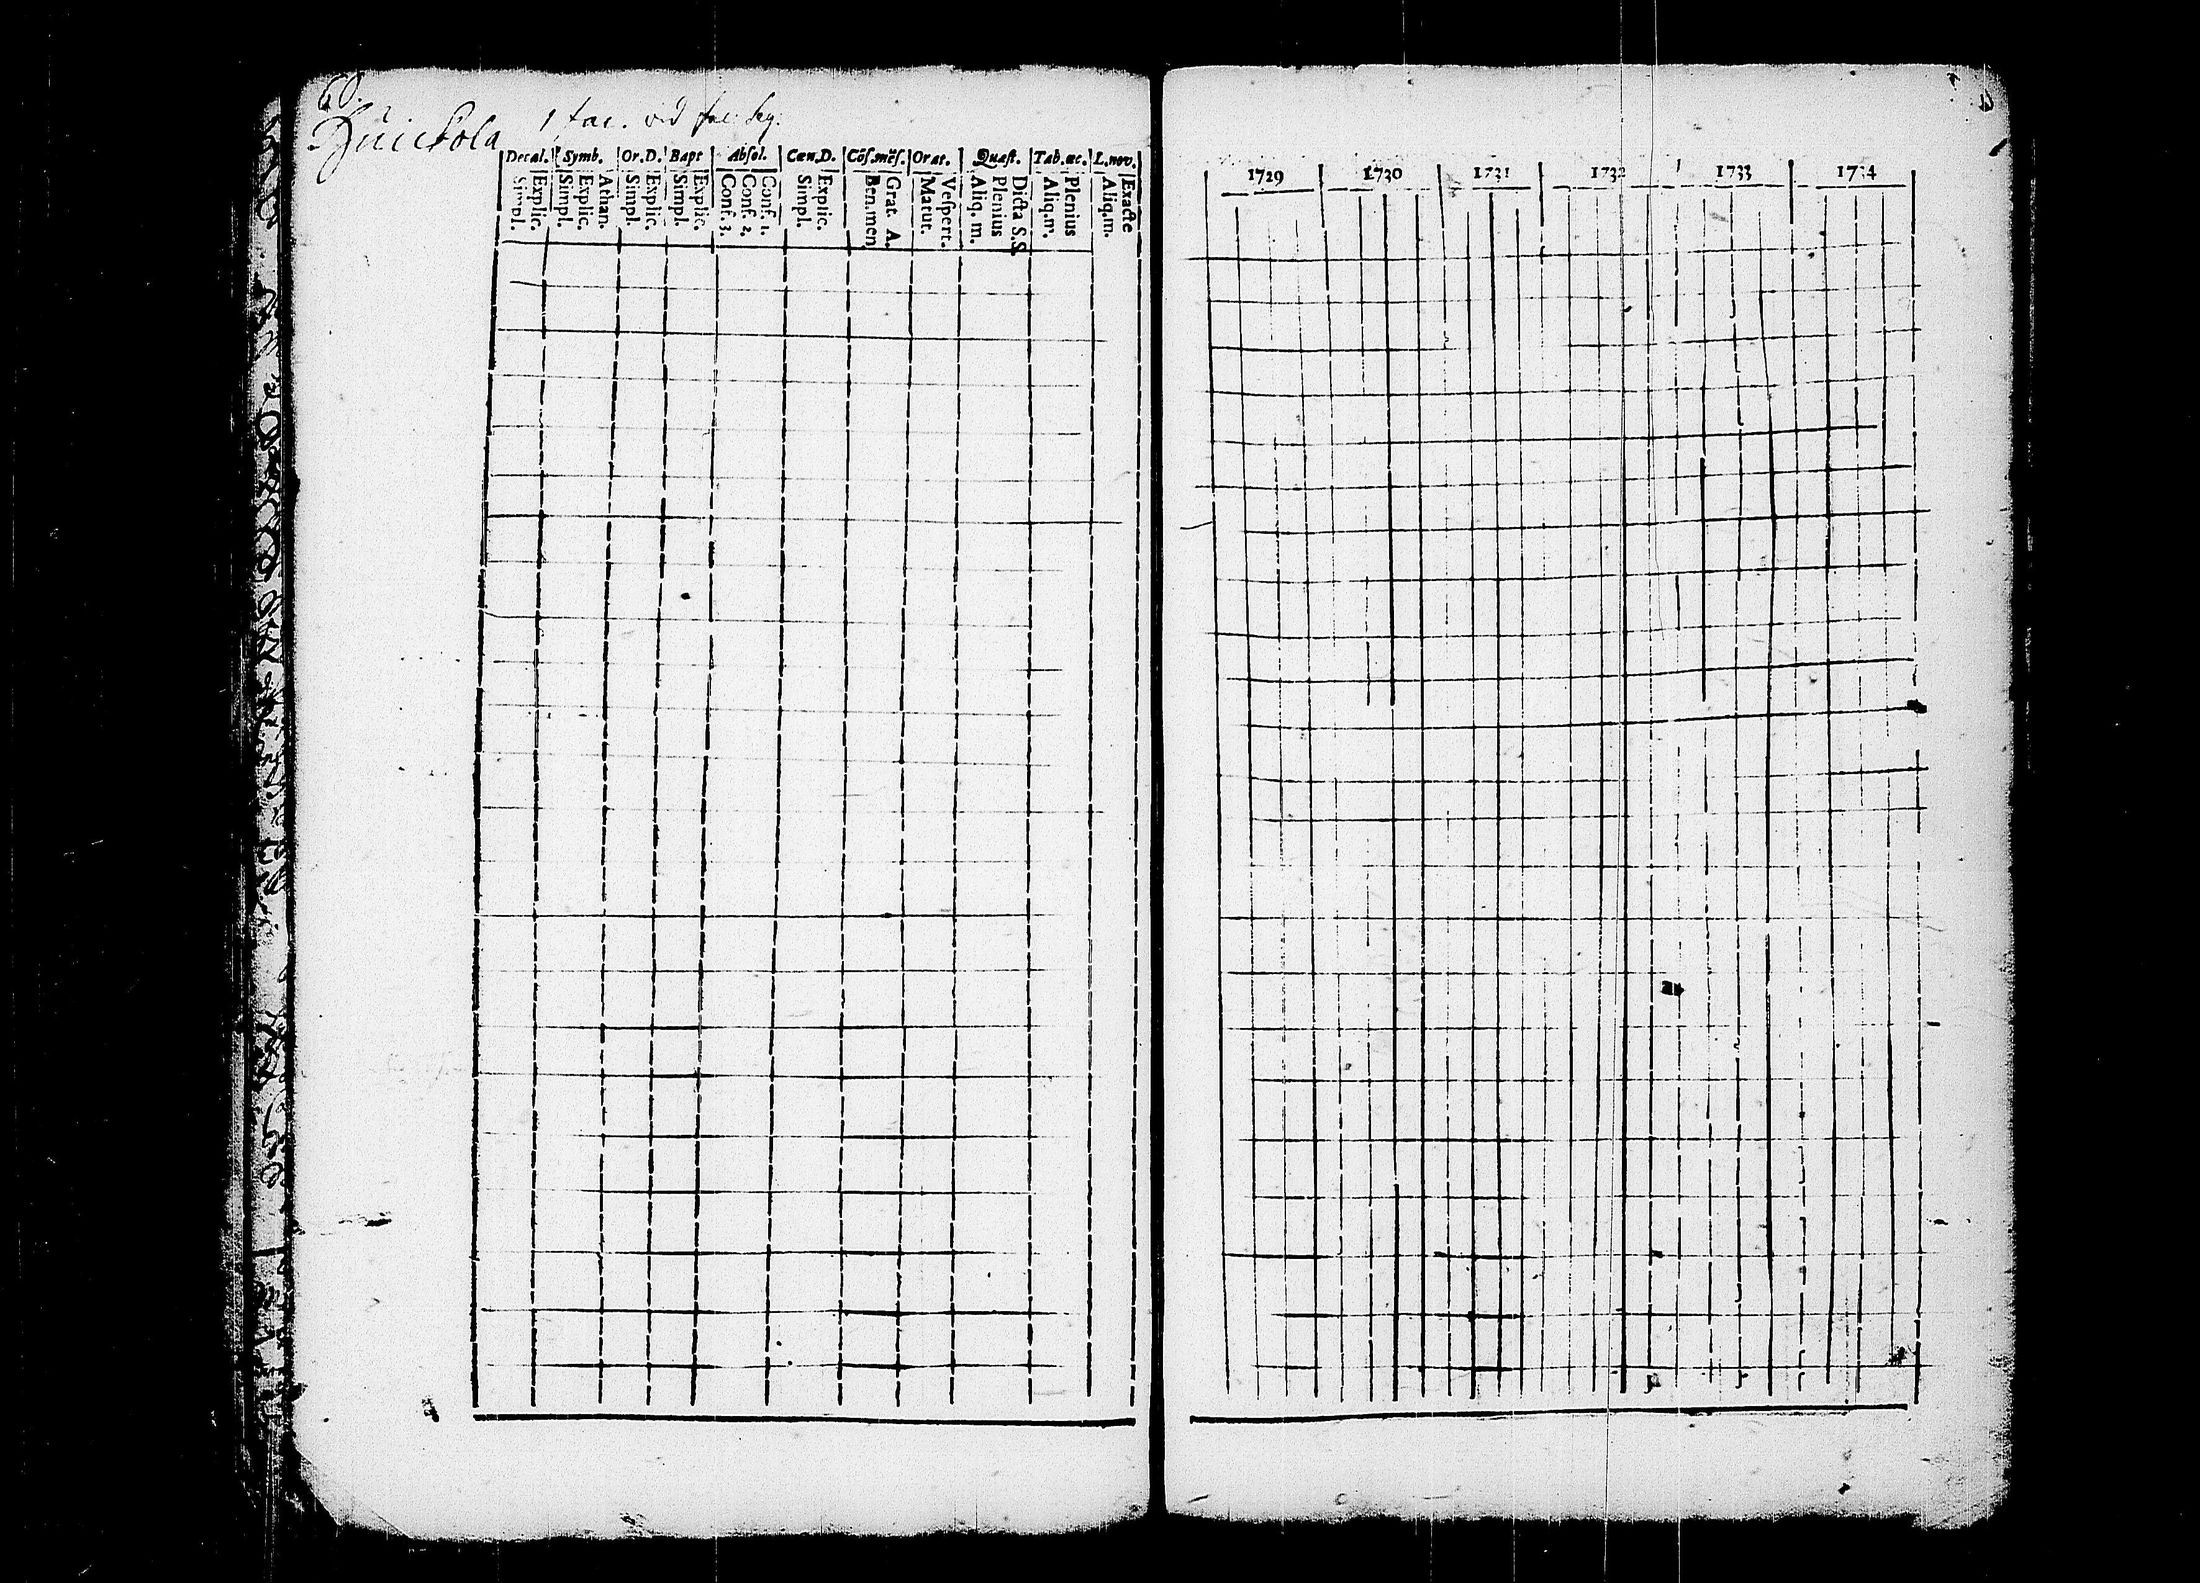 60.
1 fac. vid fac. seq.
Decal. Symb. Or.D. Bapt Abſol. Cœn.D. Cōſ.mēſ. Orat. Quæſt. Tab.œc. L.nov.
Simpl. Explic. Simpl. Explic. Athan. Simpl. Explic. Simpl. Explic. Conf. 3. Conf. 2. Conf. 1. Simpl. Explic. Ben.men Grat. A. Matut. Veſpert. Aliq. m. Plenius Dicta S.S Aliq.m. Plenius Aliq.m. Exacte
1729 1730 1731 1732 1733 1734